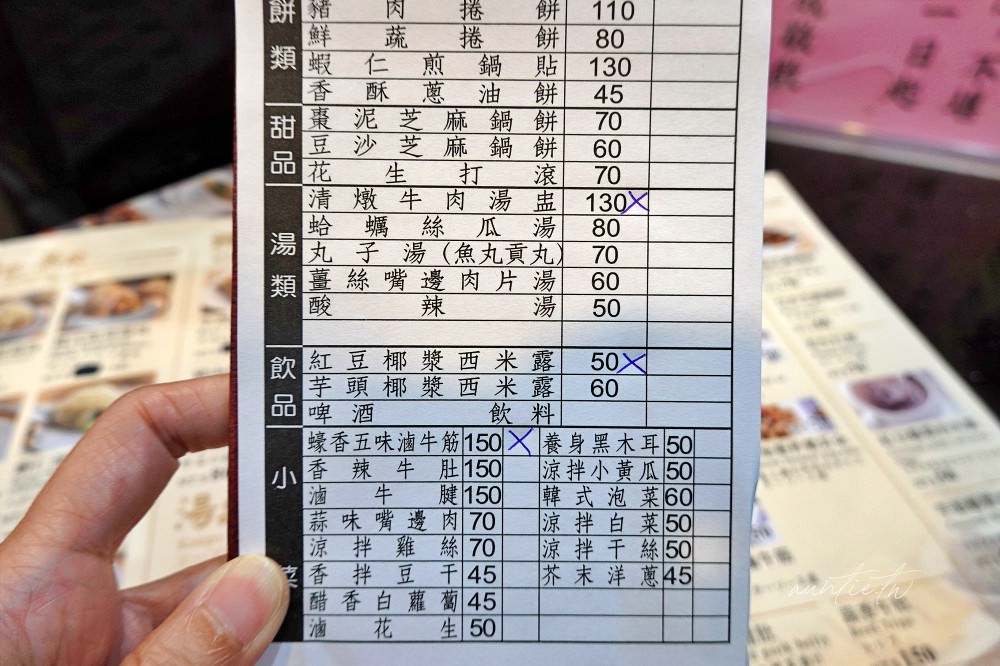 餅類
豬肉捲餅 110
鮮蔬捲餅 80
蝦仁煎鍋貼 130
香酥蔥油餅 45
甜品
棗泥芝麻鍋餅 70
豆沙芝麻鍋餅 60
花生打滾 70
湯類
清燉牛肉湯盅 130
蛤蠣絲瓜湯 80
丸子湯(魚丸貢丸) 70
薑絲嘴邊肉片湯 60
酸辣湯 50
飲品
紅豆椰漿西米露 50
芋頭椰漿西米露 60
啤酒 飲料
小菜
蠔香五味滷牛筋 150 養身黑木耳 50
香辣牛肚 150 涼拌小黃瓜 50
滷牛腱 150 韓式泡菜 60
蒜味嘴邊肉 70 涼拌白菜 50
涼拌雞絲 70 涼拌干絲 50
香拌豆干 45 芥末洋蔥 45
醋香白蘿蔔 45
滷花生 50
一日起
auntie.tw